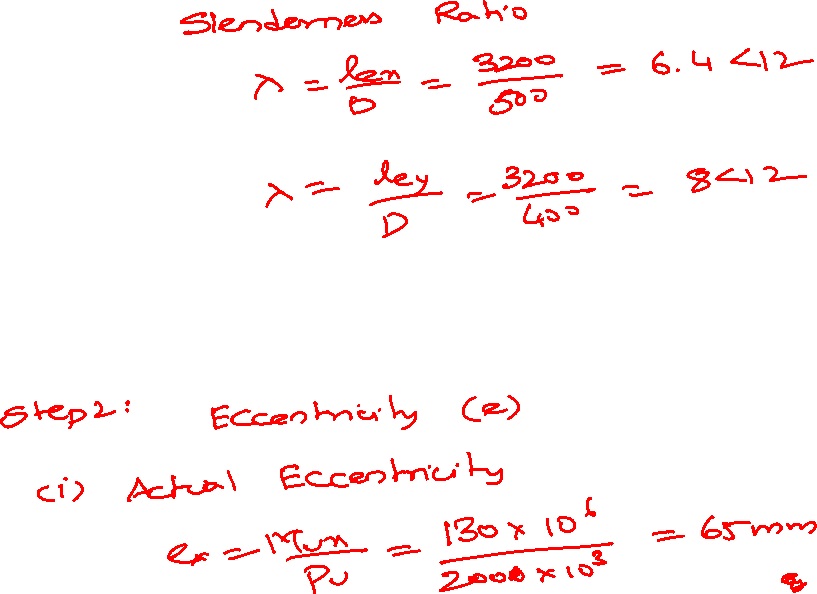 Slenderness Ratio
λ = lex/D = 3200/500 = 6.4 <12
λ = ley/D = 3200/400 = 8<12
Step2: Eccentricity (e)
(i) Actual Eccentricity
ex = Mux/Pu = 130 × 10^6/2000 × 10^3 = 65mm